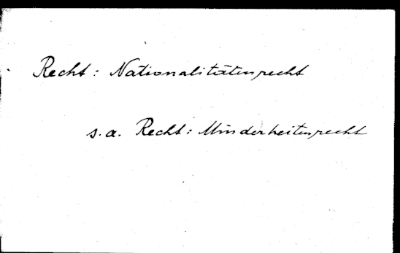 Recht: Nationalitätenrecht
s.a. Recht: Minderheitenrecht